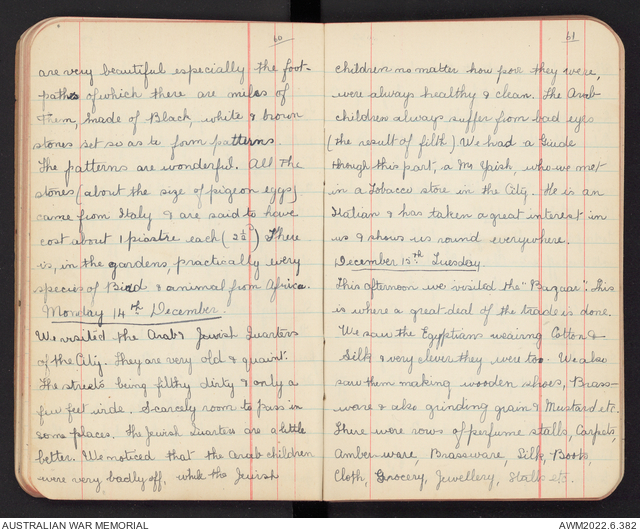 60
are very beautiful especially the foot-
paths of which there are miles of
them, made of Black, white & brown
stones set so as to form patterns.
The patterns are wonderful. All the
stones (about the size of pigeon eggs)
came from Italy & are said to have
cost about 1 piastre each (2½ᴰ) There
is, in the gardens, practically every
species of Bird & animal from Africa.
Monday 14th December.
We visited the Arab & Jewish Quarters
of the City. They are very old & quaint.
The streets being filthy dirty & only a
few feet wide. Scarcely room to pass in
some places. The Jewish Quarters are a little
better. We noticed that the Arab children
were very badly off, while the Jewish
61
children no matter how poor they were,
were always healthy & clean. The Arab
children always suffer from bad eyes
(the result of filth) We had a Guide
through this part, a Mr Yaish, who we met
in a Tobacco store in the City. He is an
Italian & has taken a great interest in
us & shows us round everywhere.
December 15th Tuesday
This afternoon we visited the "Bazaar". This
is where a great deal of the trade is done.
We saw the Egyptians weaving Cotton &
Silk & very clever they were too. We also
saw them making wooden shoes, Brass-
ware & also grinding grain & Mustard etc.
There were rows of perfume stalls, Carpets,
Amber ware, Brassware, Silk, Boots,
Cloth, Grocery, Jewellery, Stalls etc.
AUSTRALIAN WAR MEMORIAL
AWM2022.6.382